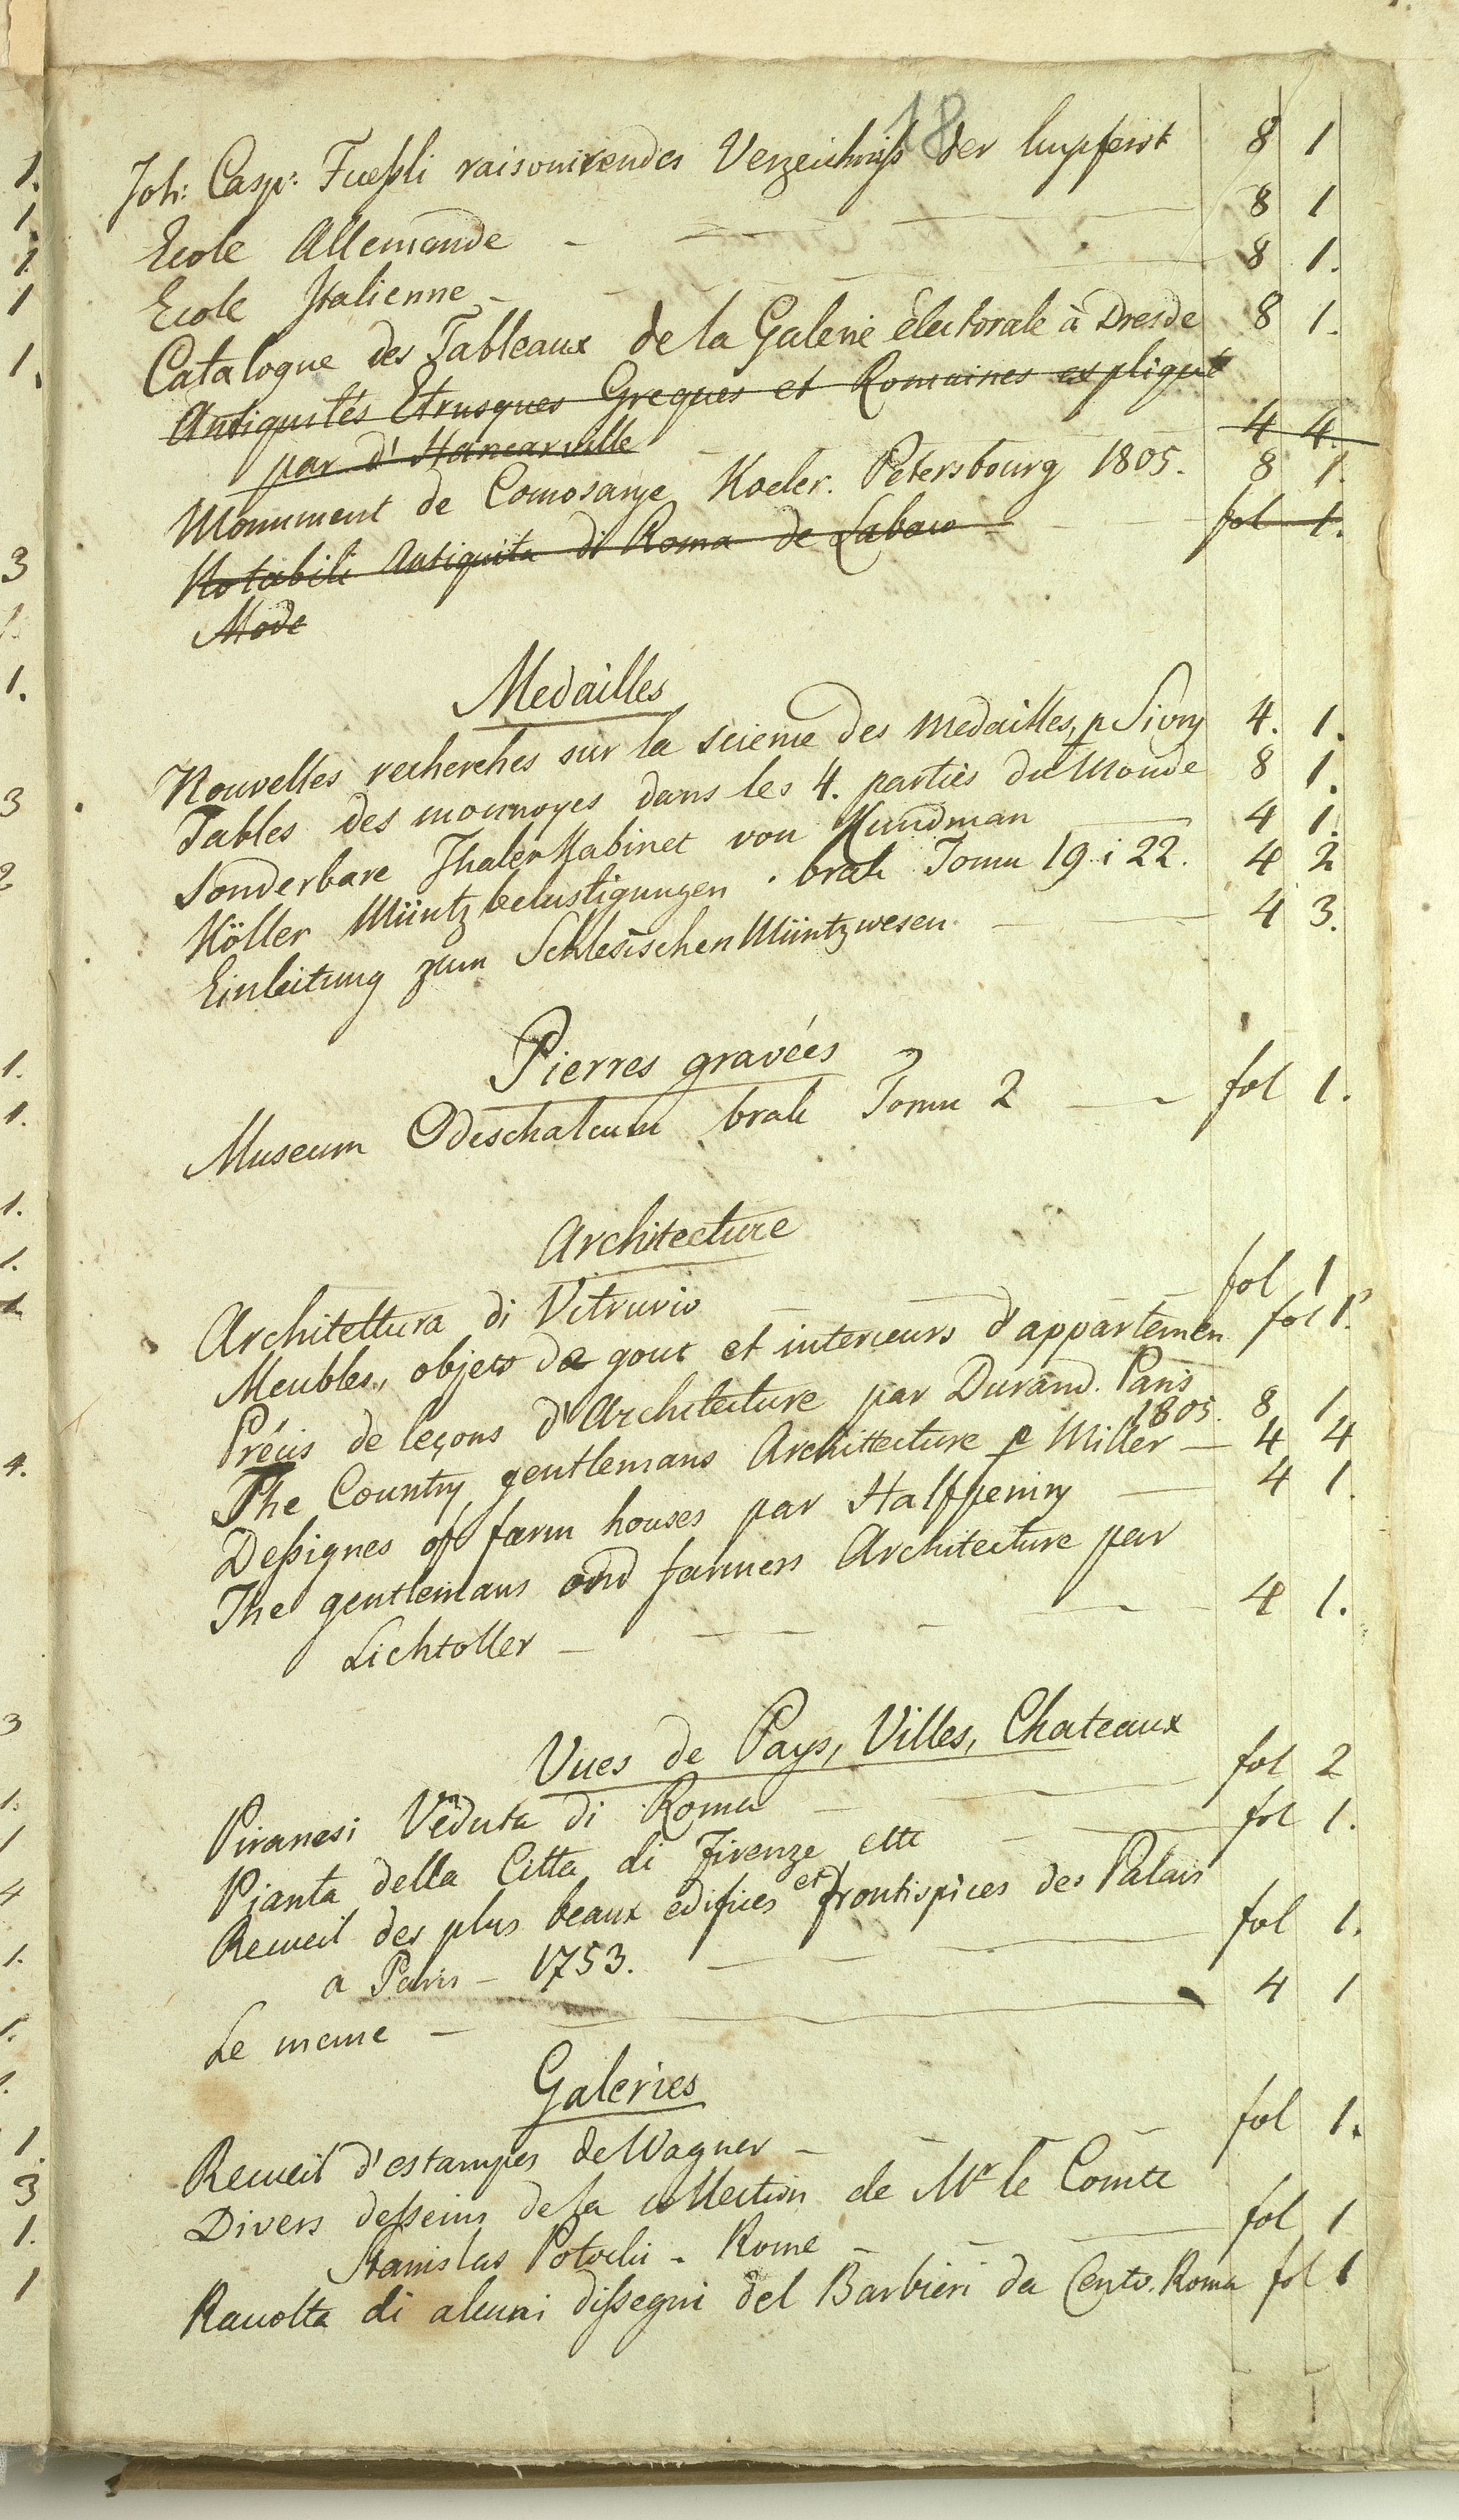 18
Joh: Casp: Fueßli raisonirendes Verzeichniß der kupferst 8 1
Ecole Allemande - 8 1
Ecole Italienne - 8 1.
Catalogue des Tableaux de la Galerie électorale à Dresde 8 1.
Antiquités Etrusques Greques et Romaines expliqué
par d'Hancarville 4 4.
Monument de Comosarye Koeler. Petersbourg 1805. 8 1.
Notabili Antiquita di Roma de Labaco fol 1.
Mode
Medailles
Nouvelles recherches sur la science des medailles, p Sivry 4. 1.
Tables des monnoyes dans les 4. parties du Monde 8 1.
Sonderbare Thaler Kabinet von Kundman 4 1.
Köller Müntz belustigungen . brak Tomu 19 i 22. 4 2
Einleitung zum Schlesischen Müntzwesen 4 3.
Pierres gravées
Museum Odeschalcum brak Tomu 2 fol 1.
Architecture
Architettura di Vitruvio fol 1
Meubles, objets de gout et interieurs d'appartemen fol 1.
Précis de leçons d'Architecture par Durand. Paris
1805. 8 1
The Country gentlemans Architecture p Miller 4 4
Deßignes of farm houses par Halfpenny 4 1.
The gentlemans and farmers Architecture par
Lichtoller 4 1.
Vues de Pays, Villes, Chateaux
Piranesi Veduta di Roma fol 2
Pianta della Citta di Firenze ette fol 1.
Recueil des plus beaux edifices et frontispices des Palais
a Paris - 1753. fol 1.
Le meme - 4 1
Galeries
Recueil d'estampes de Wagner - fol 1.
Divers deßeins de la collection de Mr le Comte
Stanislas Potocki - Rome fol 1
Racolta di alcuni dißegni del Barbieri da Cento. Roma fol 1